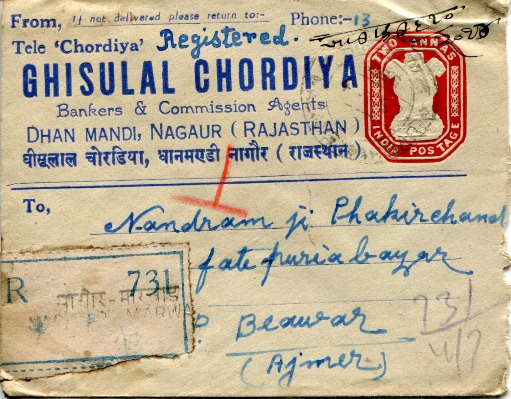 From, If not delivered please return to:- Phone:-13
Tele 'Chordiya' Registered.
GHISULAL CHORDIYA
Bankers & Commission Agents
DHAN MANDI, NAGAUR (RAJASTHAN)
घीसूलाल चोरडिया, धानमण्डी नागौर (राजस्थान)
TWO ANNAS
INDIA POSTAGE
To,
Nandram ji Phakirchand
fatepuria bazar
Beawar
(Ajmer)
R 731
731
11/7